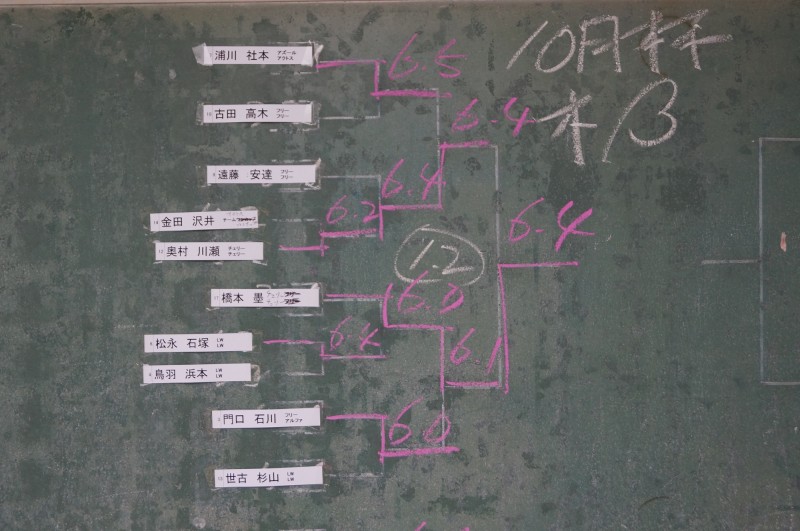 10月杯
水β
浦川 社本 アズール アクトス
6.5
古田 高木 フリー フリー
6-4
遠藤 安達 フリー フリー
6.4
金田 沢井 チーム
6.2
奥村 川瀬 チェリー チェリー
6-4
12
橋本 墨
6.3
松永 石塚 LW LW
6.1
鳥羽 浜本 LW LW
門口 石川 フリー アルファ
6.0
世古 杉山 LW LW